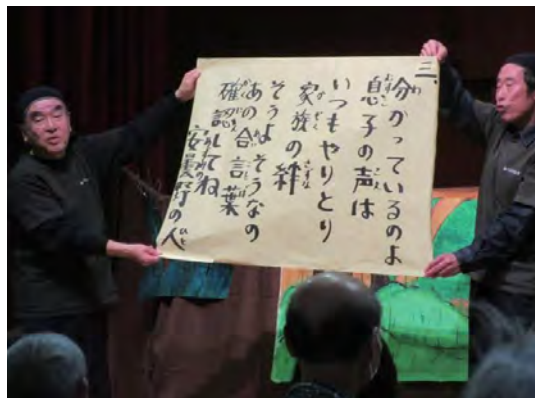 三、
分かっているのよ
息子の声は
いつもやりとり
家族の絆
そうよ そうなの
あの合言葉
確認してね
安曇野の人